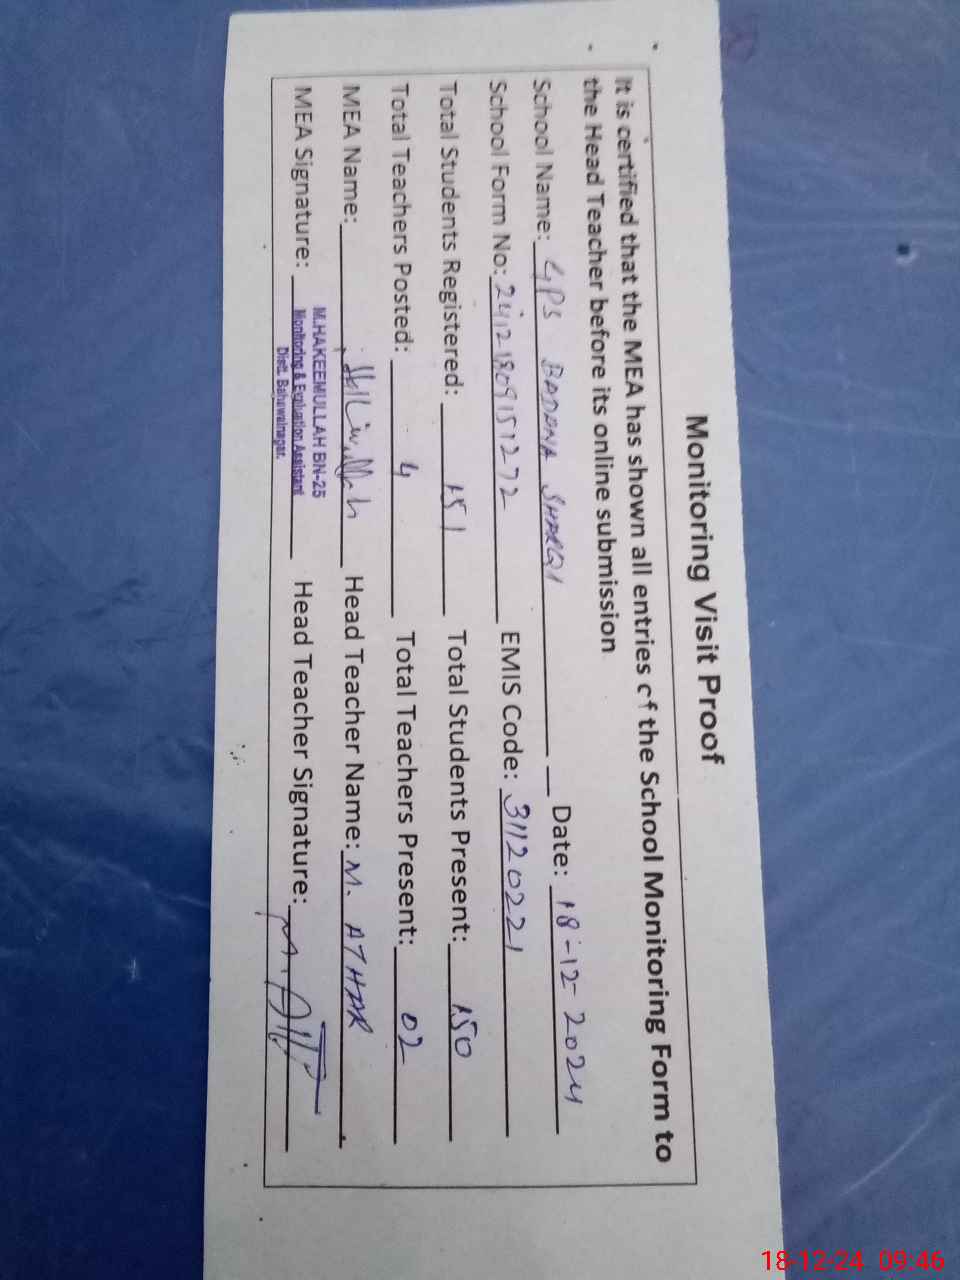 Monitoring Visit Proof
It is certified that the MEA has shown all entries of the School Monitoring Form to
the Head Teacher before its online submission
School Name: GPS BADANA SHARQI Date: 18-12-2024
School Form No: 24121809151272 EMIS Code: 31120221
Total Students Registered: 151 Total Students Present: 150
Total Teachers Posted: 4 Total Teachers Present: 02
MEA Name: Head Teacher Name: M. ATHAR
MEA Signature: Head Teacher Signature:
M.HAKEEMULLAH BN-25
Monitoring & Evaluation Assistant
Distt. Bahawalnagar.
18-12-24 09:46